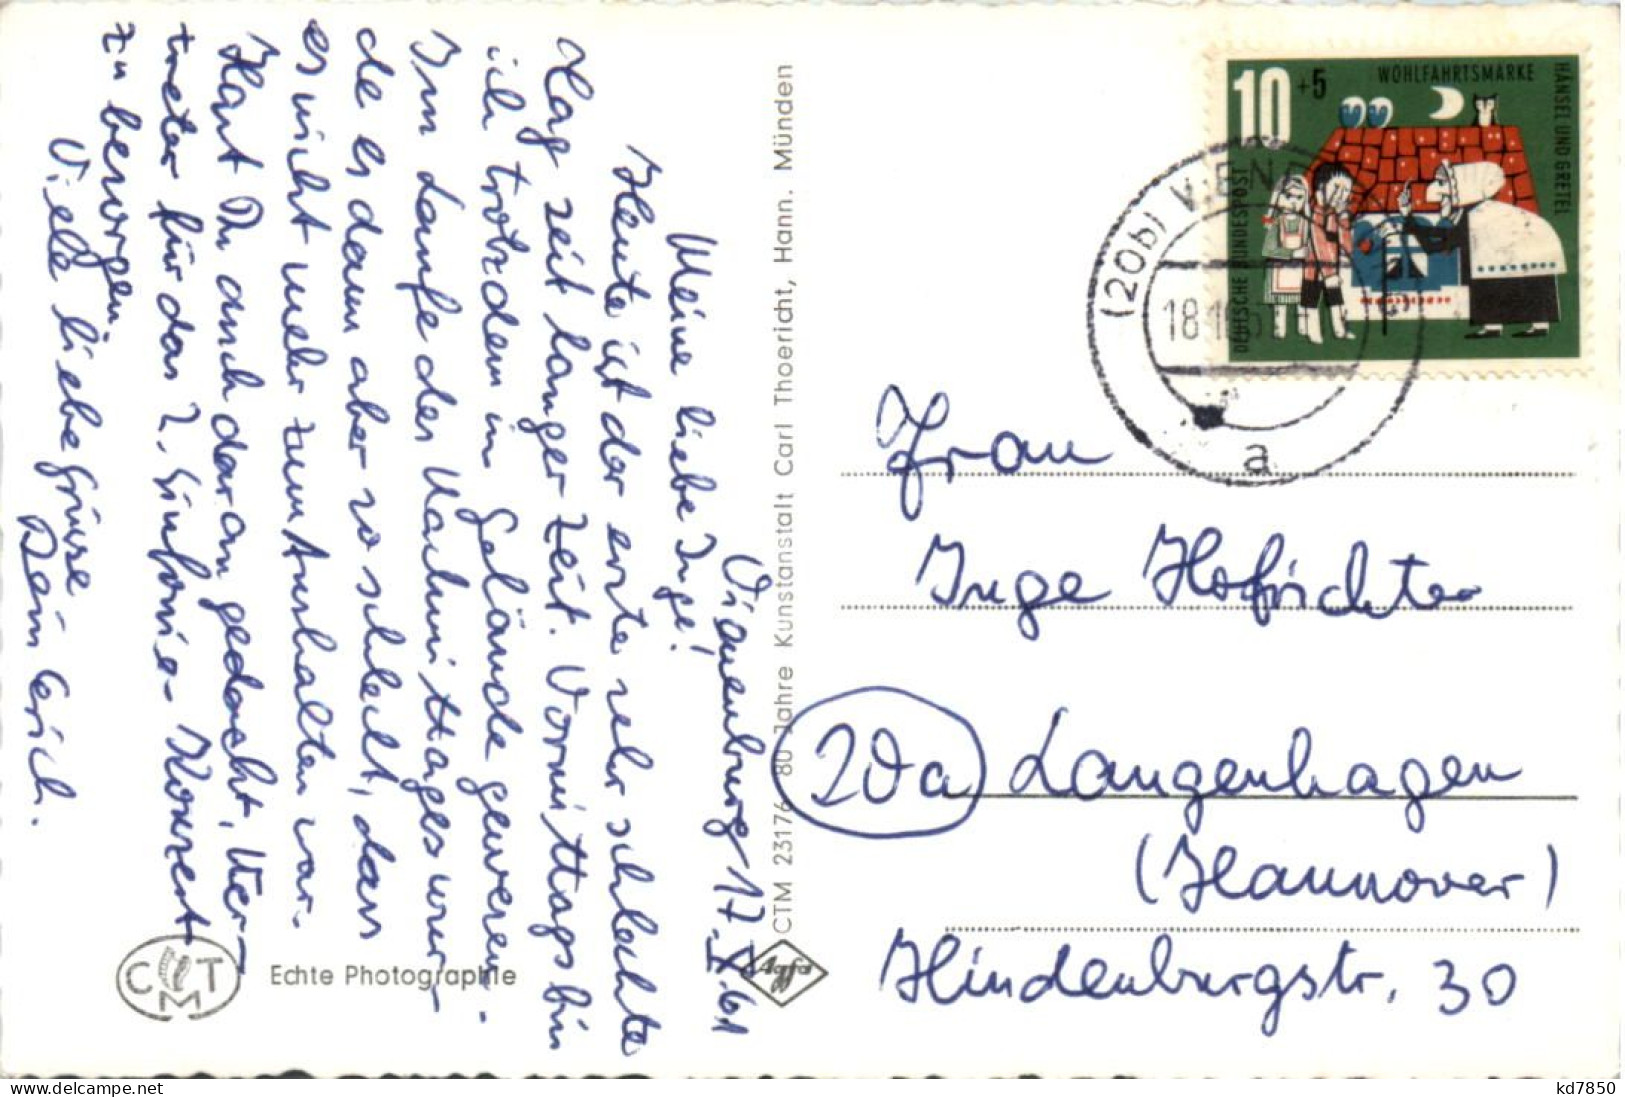 Vienenburg, 17.X.61
Meine liebe Inge!
Heute ist der erste sehr schlechte
Tag seit langer Zeit. Vormittags bin
ich trotzdem im Gelände gewesen.
Im Laufe des Nachmittages wur-
de es dann aber so schlecht, dass
es nicht mehr zum Aushalten war.
Hast Du auch daran gedacht, Ver-
treter für das 2. Sinfonie-Konzert
zu besorgen.
Viele liebe Grüsse
Dein Erich.
CTM 23176 80 Jahre Kunstanstalt Carl Thoericht, Hann. Münden
CMT
Echte Photographie
Agfa
10 +5
WOHLFAHRTSMARKE
HÄNSEL UND GRETEL
DEUTSCHE BUNDESPOST
(20b) VIENE
18.10.61
a
Frau
Inge Hofrichter
20a Langenhagen
(Hannover)
Hindenburgstr. 30
www.delcampe.net
kd7850